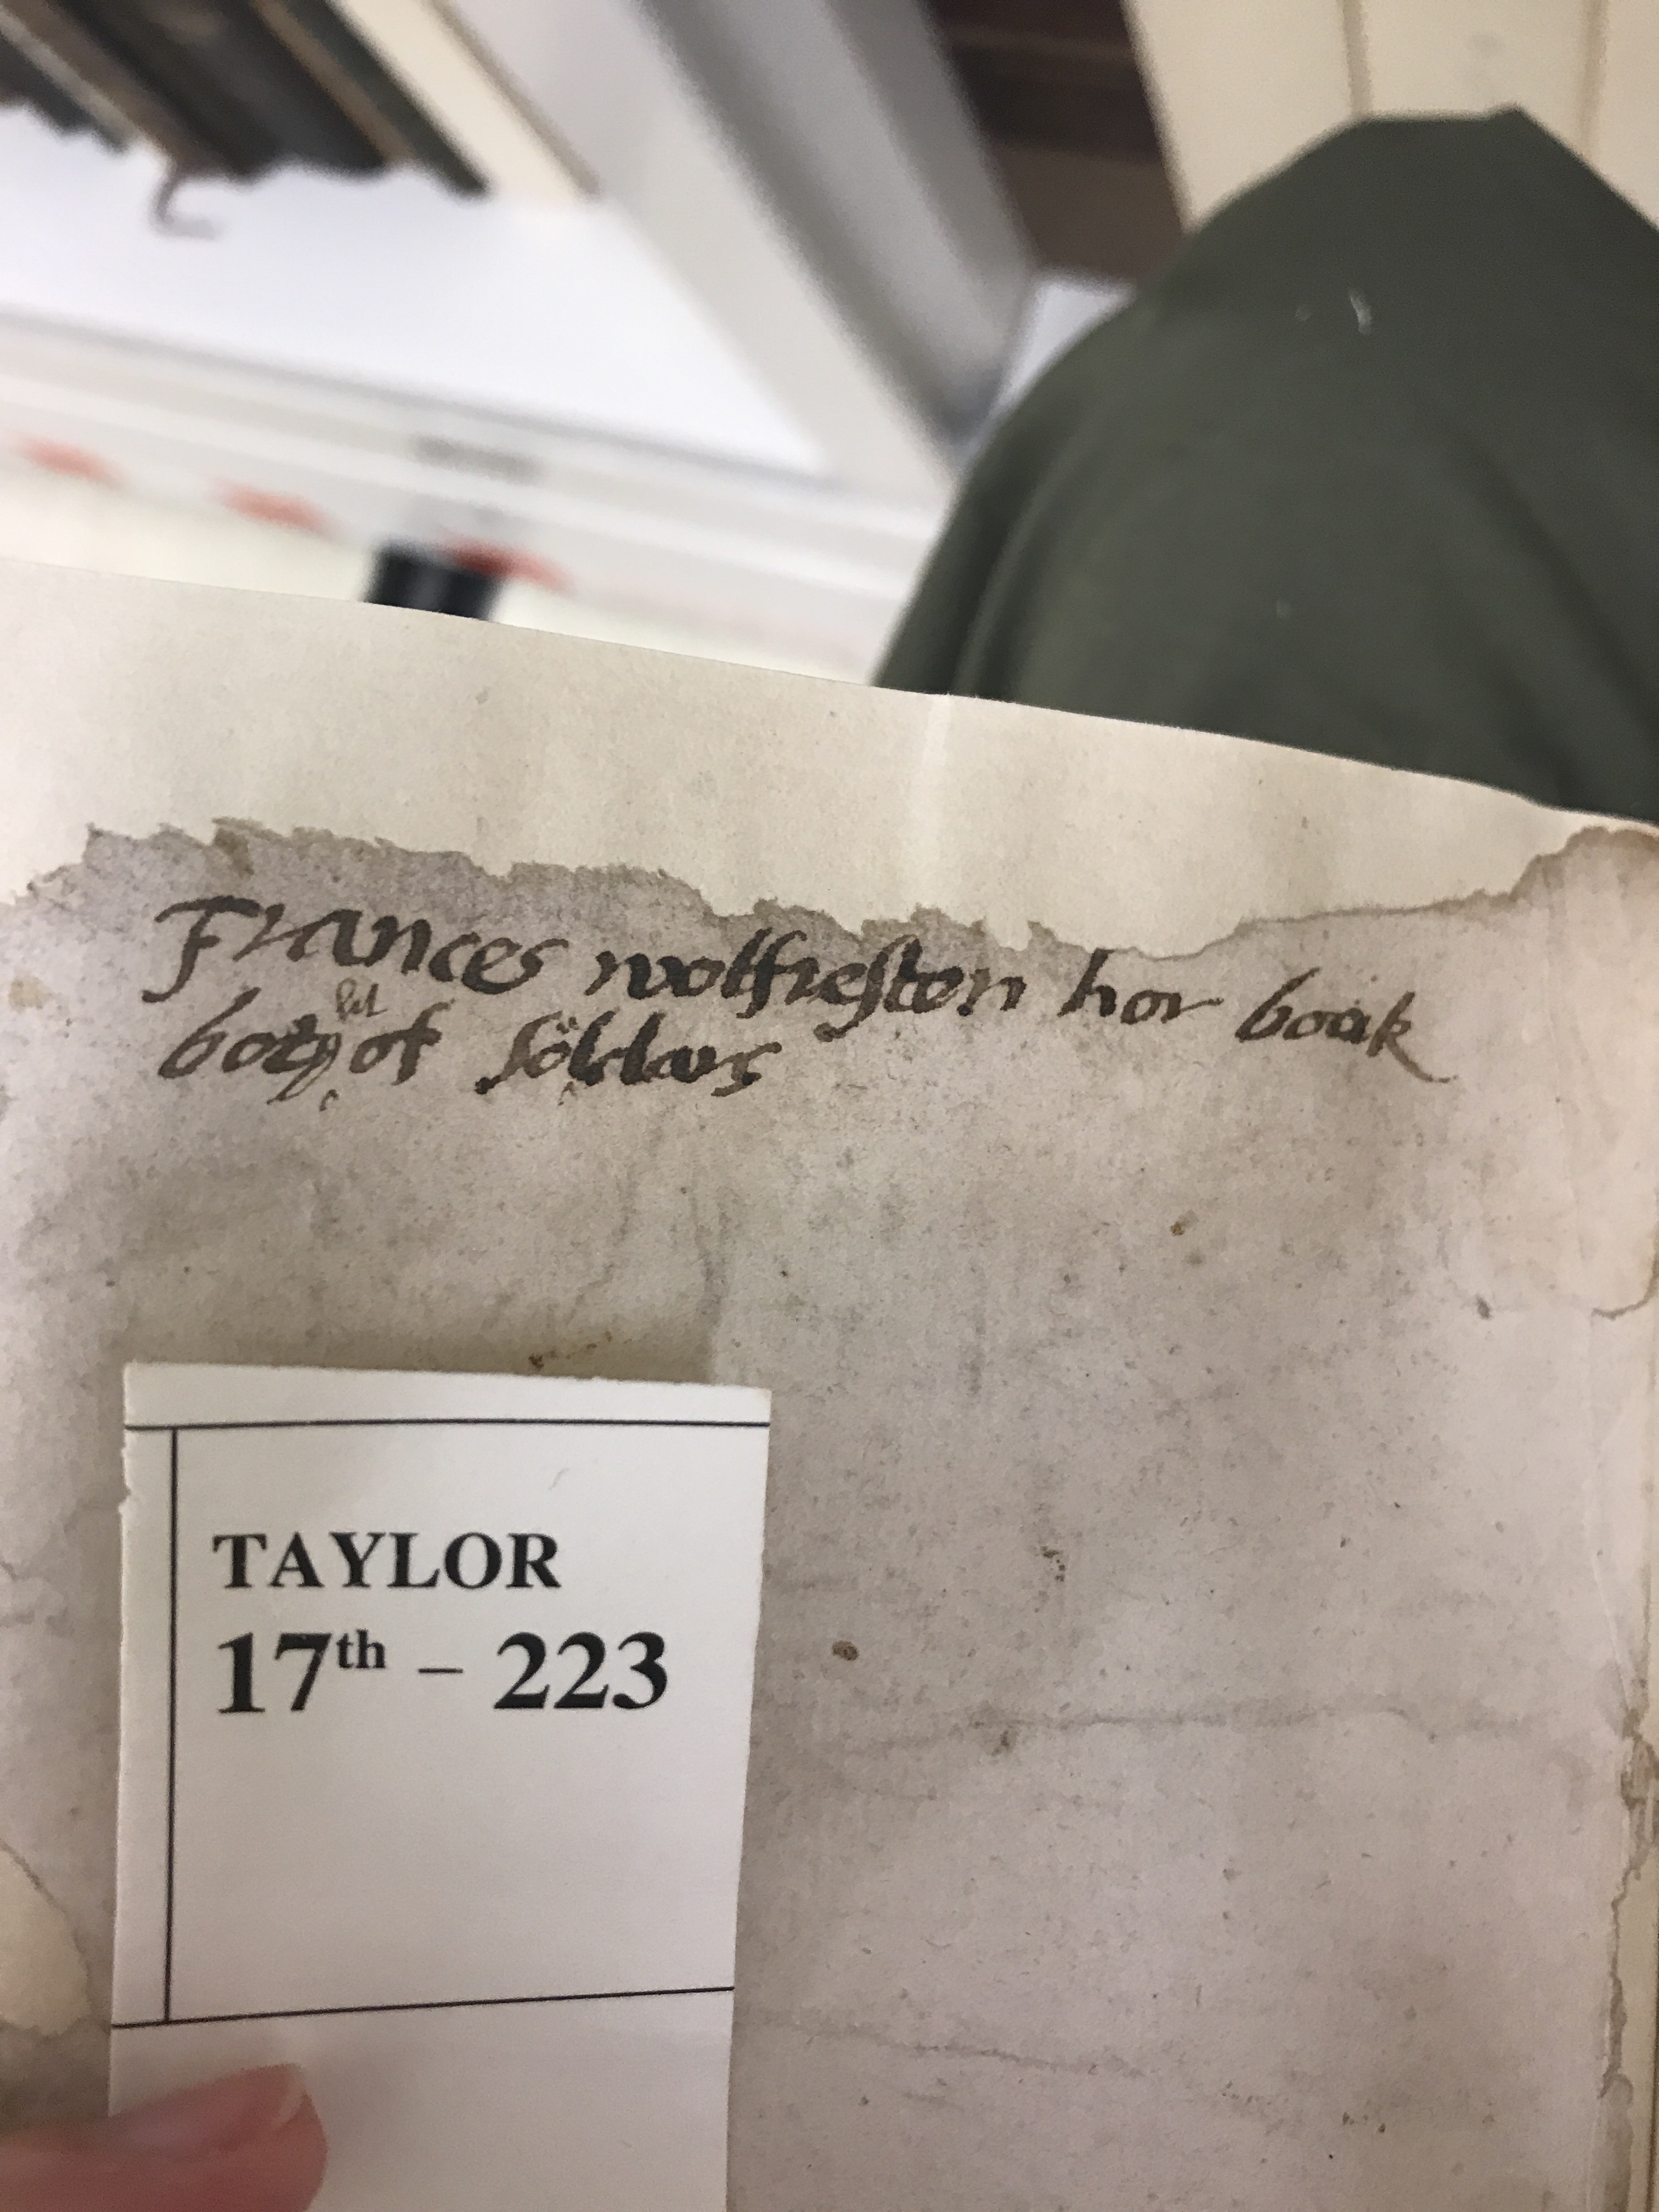 Frances wolfreston hor book
botg of soldars
TAYLOR
17th – 223